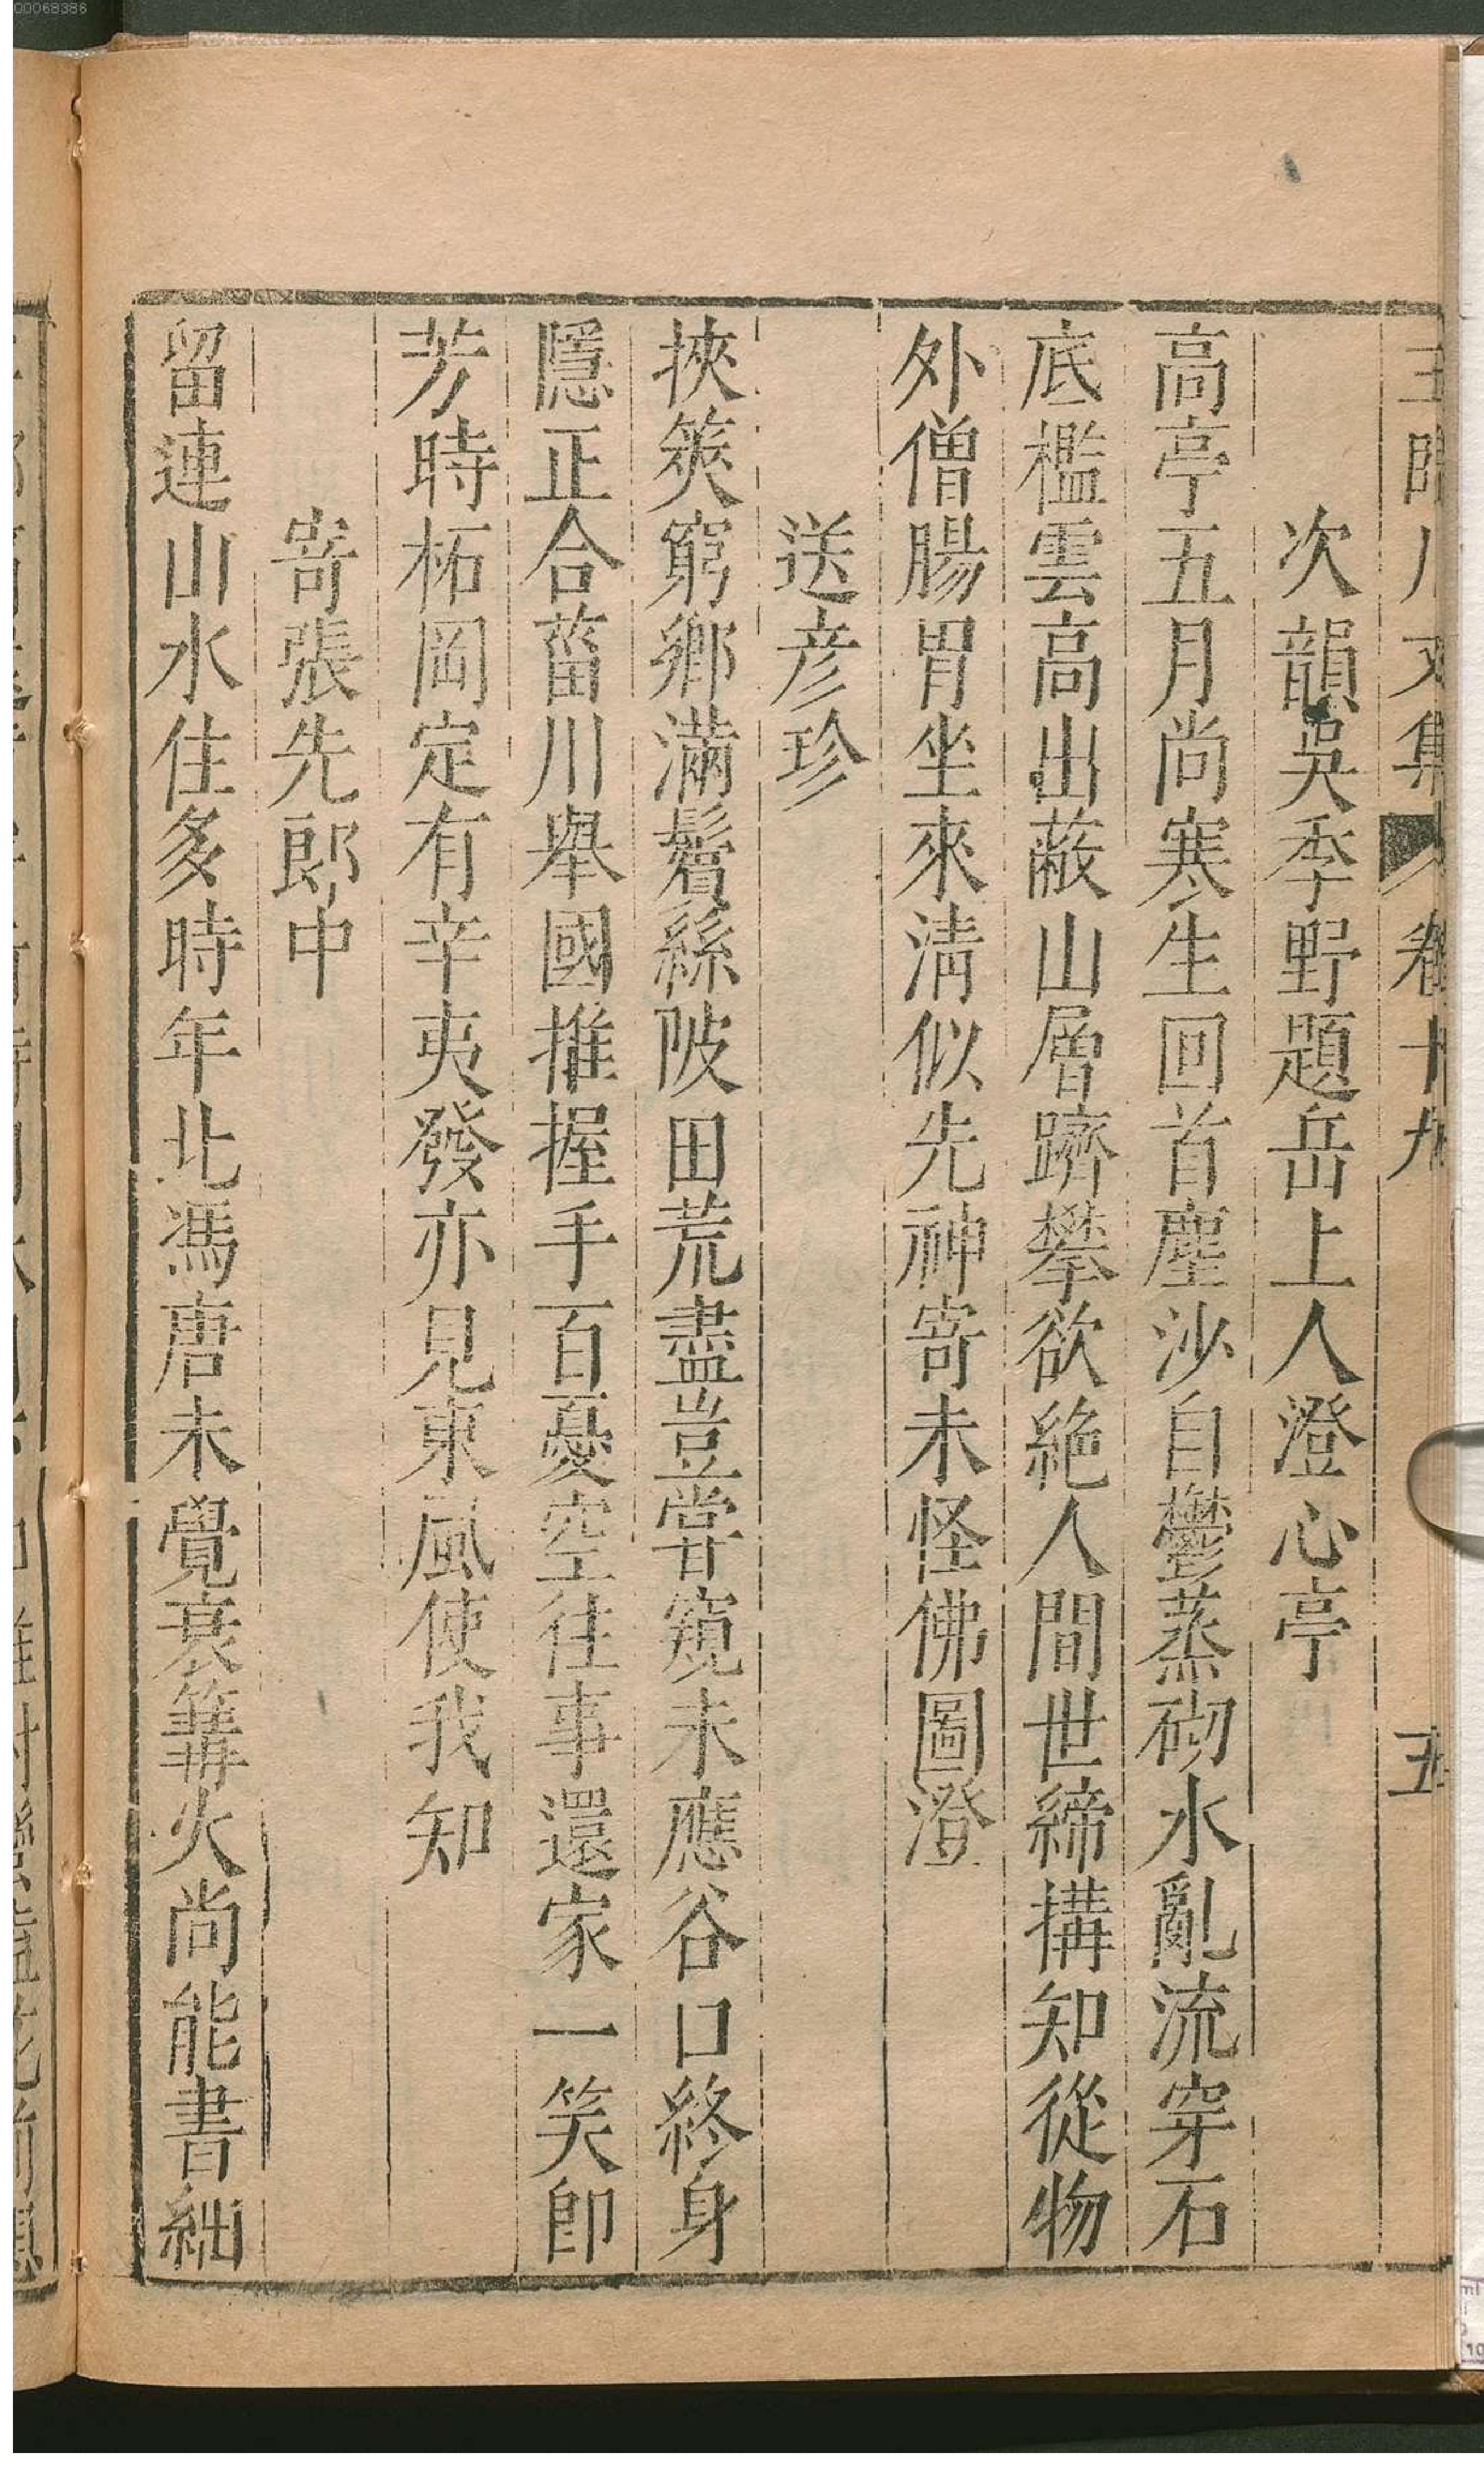 00068386
王臨川文集 卷十九 五
次韻吳季野題岳上人澄心亭
高亭五月尚寒生回首塵沙自鬱蒸砌水亂流穿石
底檻雲高出蔽山層躋攀欲絶人間世締搆知從物
外僧腸胃坐來淸似先神寄未怪佛圖澄
送彥珍
挾筴窮鄉滿鬢絲陂田荒盡豈甞窺未應谷口終身
隱正合菑川舉國推握手百憂空往事還家一笑卽
芳時柘岡定有辛夷發亦見東風使我知
寄張先郎中
留連山水住多時年比馮唐未覺衰篝火尚能書細